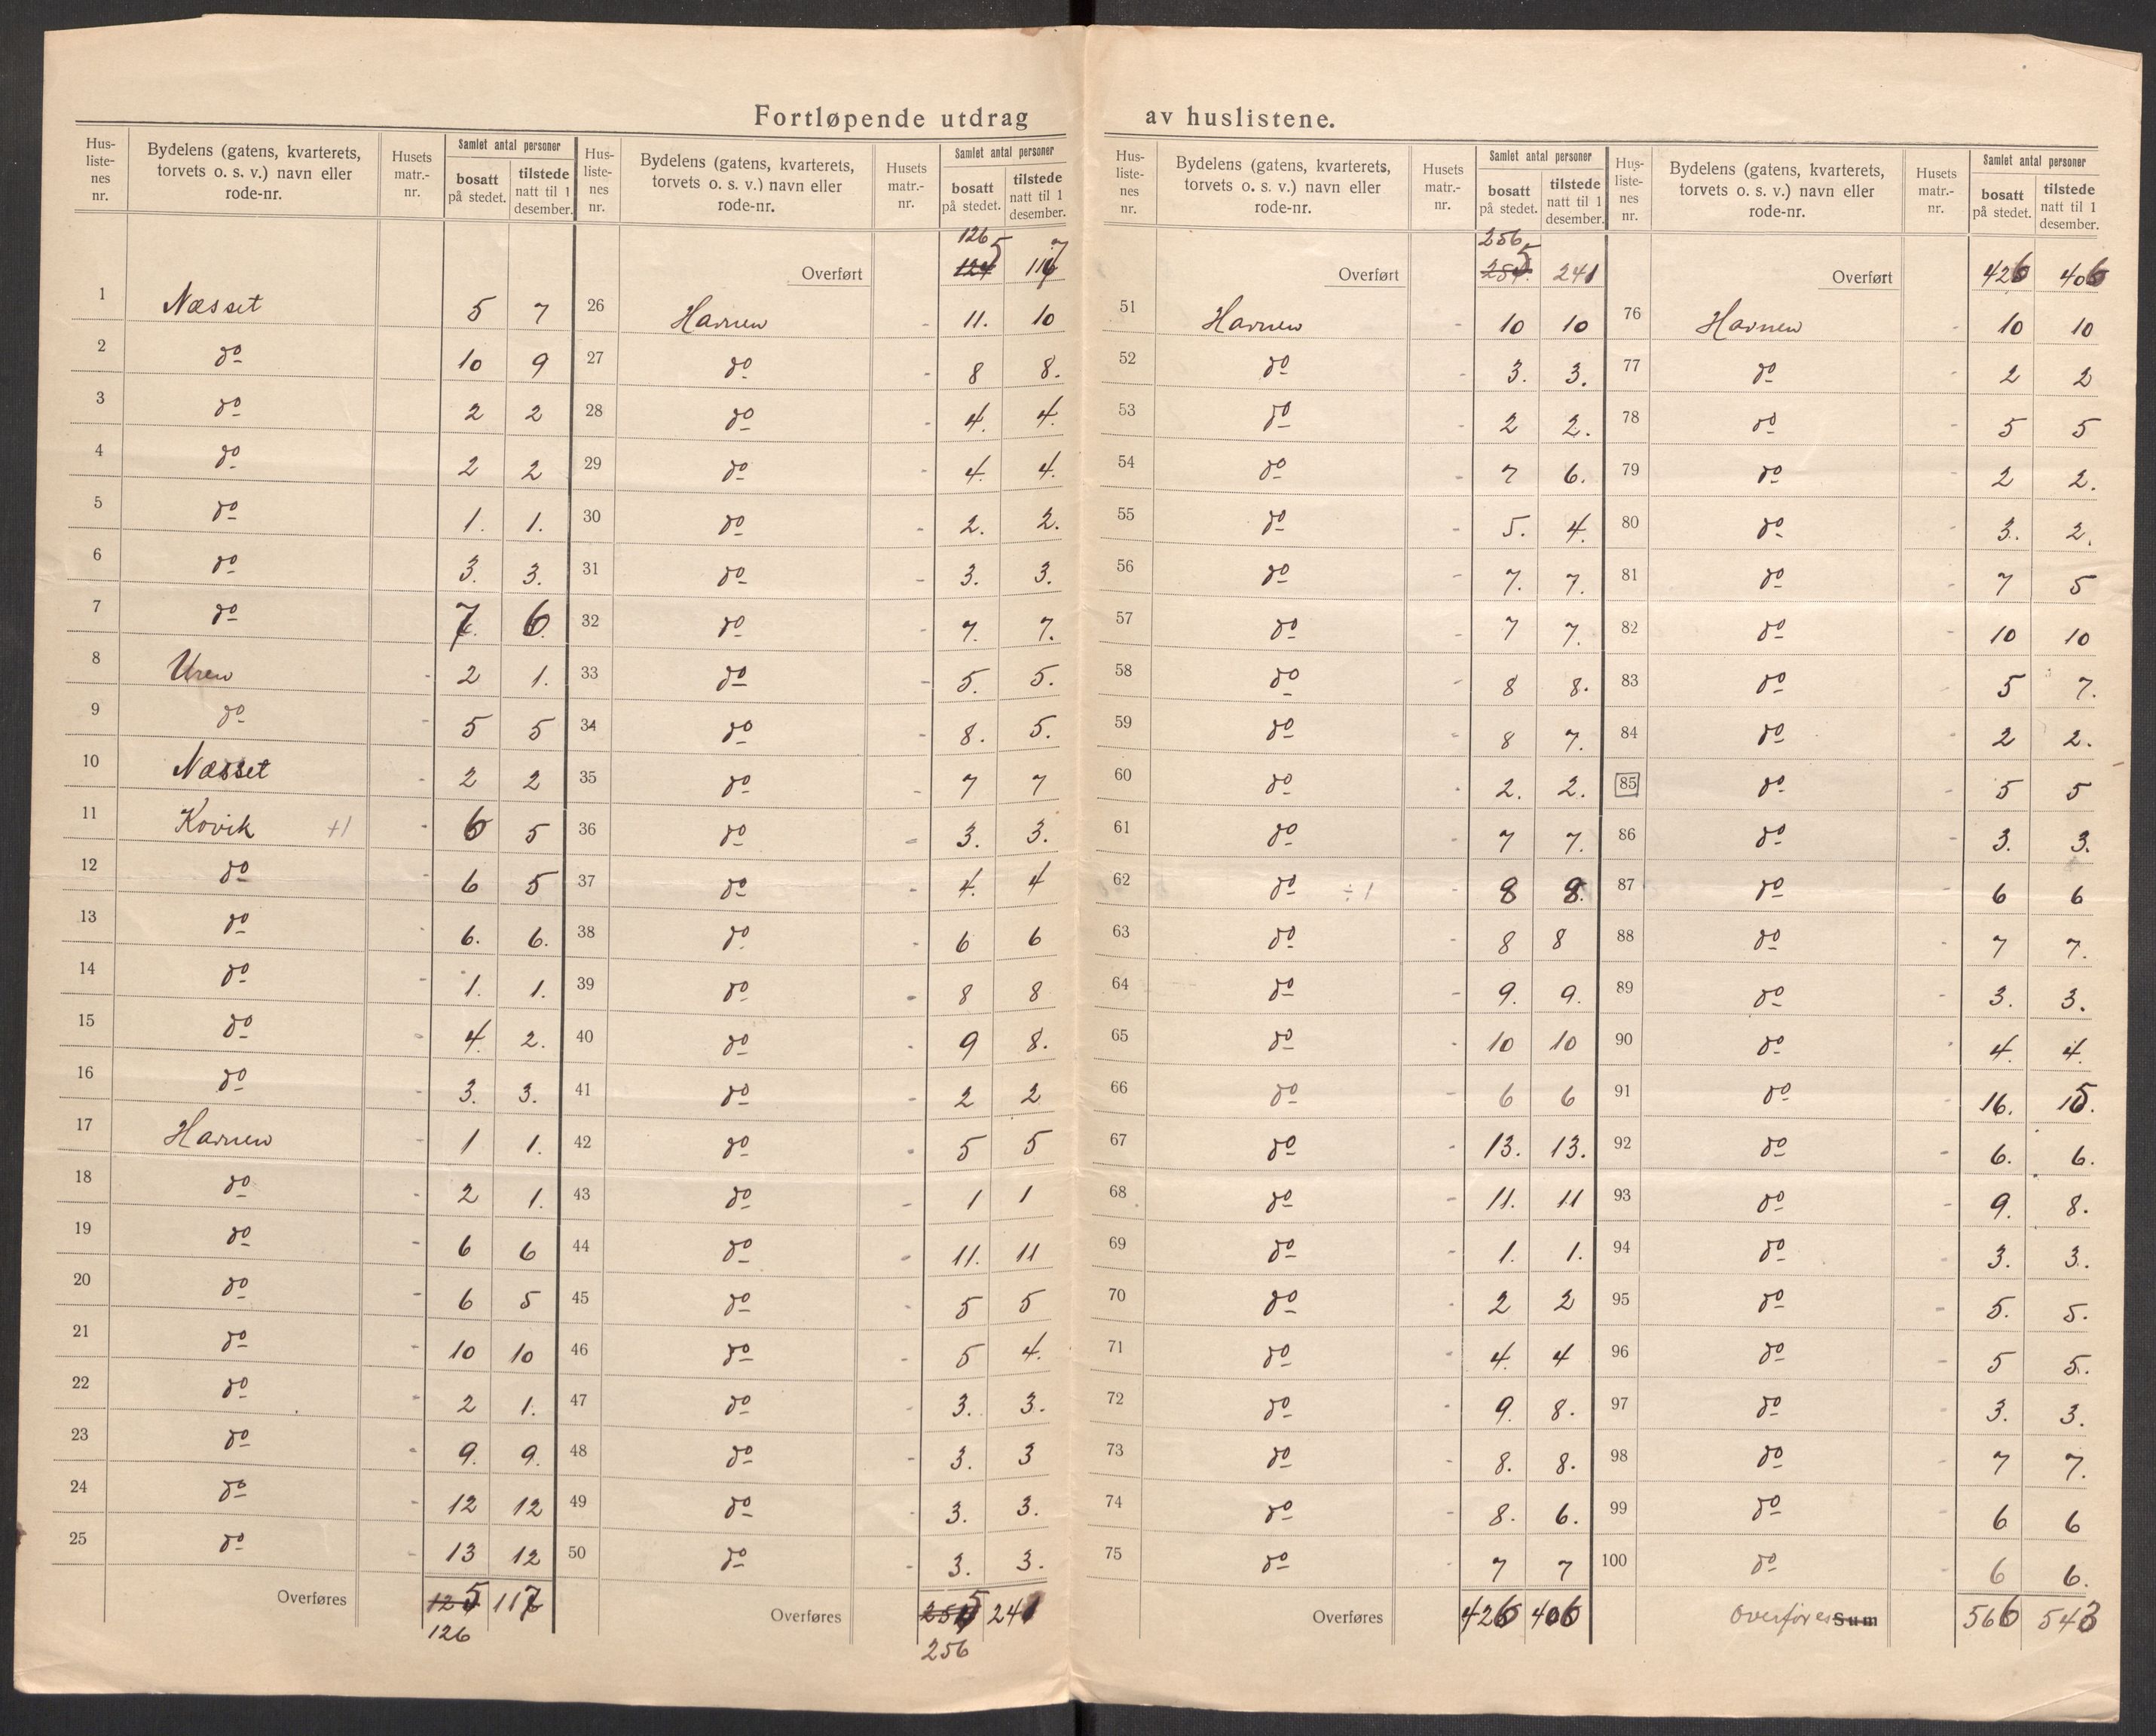 Fortløpende utdrag av huslistene.
Hus-liste-nes nr. | Bydelens (gatens, kvarterets, torvets o. s. v.) navn eller rode-nr. | Husets matr.-nr. | Samlet antal personer bosatt på stedet. | tilstede natt til 1 desember.
1 Næsset 5 7
2 do 10 9
3 do 2 2
4 do 2 2
5 do 1. 1.
6 do 3. 3.
7 do 7. 6.
8 Uren - 2 1.
9 do - 5 5
10 Næsset - 2 2
11 Kovik +1 - 6 5
12 do - 6 5
13 do - 6. 6.
14 do - 1. 1.
15 do - 4. 2.
16 do - 3. 3.
17 Havnen - 1 1.
18 do - 2 1.
19 do - 6 6
20 do - 6 5
21 do - 10 10
22 do - 2 1.
23 do - 9. 9.
24 do - 12 12
25 do - 13 12
Overføres 125 117
126
Hus-liste-nes nr. | Bydelens (gatens, kvarterets, torvets o. s. v.) navn eller rode-nr. | Husets matr.-nr. | Samlet antal personer bosatt på stedet. | tilstede natt til 1 desember.
126 5 7
Overført 124 117
26 Havnen - 11. 10
27 do - 8 8.
28 do - 4. 4.
29 do - 4. 4.
30 do - 2. 2.
31 do - 3. 3.
32 do - 7. 7.
33 do - 5. 5.
34 do - 8. 5.
35 do - 7 7
36 do - 3. 3.
37 do - 4. 4
38 do - 6 6
39 do - 8 8
40 do - 9 8.
41 do - 2 2
42 do - 5 5
43 do - 1 1
44 do - 11. 11
45 do - 5 5
46 do - 5 4.
47 do - 3. 3.
48 do - 3. 3
49 do - 3. 3.
50 do - 3. 3.
Overføres 255 241
256
Hus-liste-nes nr. | Bydelens (gatens, kvarterets, torvets o. s. v.) navn eller rode-nr. | Husets matr.-nr. | Samlet antal personer bosatt på stedet. | tilstede natt til 1 desember.
256 5
Overført 254. 241
51 Havnen - 10 10
52 do - 3. 3.
53 do - 2 2.
54 do - 7 6.
55 do - 5. 4.
56 do - 7. 7.
57 do - 7 7.
58 do - 8 8.
59 do - 8 7.
60 do - 2. 2.
61 do - 7 7.
62 do ÷1 - 8 8.
63 do - 8 8
64 do - 9. 9.
65 do - 10 10
66 do - 6 6
67 do - 13. 13.
68 do - 11. 11
69 do - 1. 1.
70 do - 2 2
71 do - 4. 4
72 do - 9. 8.
73 do - 8. 8.
74 do - 8. 6.
75 do - 7 7
Overføres 426 406
Hus-liste-nes nr. | Bydelens (gatens, kvarterets, torvets o. s. v.) navn eller rode-nr. | Husets matr.-nr. | Samlet antal personer bosatt på stedet. | tilstede natt til 1 desember.
Overført 426 406
76 Havnen - 10 10
77 do - 2 2
78 do - 5 5
79 do - 2 2.
80 do - 3. 2.
81 do - 7 5
82 do - 10 10
83 do - 5 7.
84 do - 2 2.
85 do - 5 5
86 do - 3. 3.
87 do - 6 6
88 do - 7 7.
89 do - 3. 3.
90 do - 4. 4.
91 do - 16. 15.
92 do - 6. 6.
93 do - 9. 8.
94 do - 3. 3.
95 do - 5. 5.
96 do - 5 5.
97 do - 3. 3.
98 do - 7 7.
99 do - 6 6
100 do - 6 6.
Overføres Sum 566 543